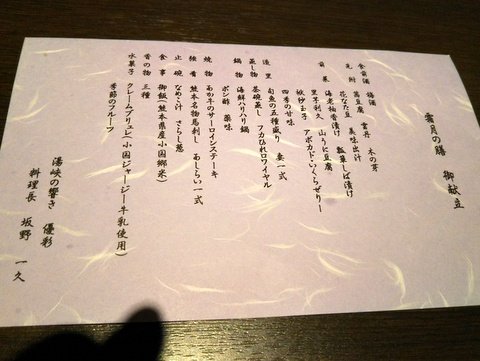 霜月の膳　御献立
食前酒　梅酒
先附　菊豆腐　雲丹　木の芽
花なた豆　美味出汁
前菜　海老柚香漬け　瓢箪しば漬け
里芋利久　山うに豆腐
袱紗玉子　アボカド・いくらゼリー
四季の甘味
造里　旬魚の五種盛り　妻一式
蒸し物　茶碗蒸し　フカひれロワイヤル
鍋物　海鮮ハリハリ鍋
ポン酢　薬味
焼物　あか牛のサーロインステーキ
強肴　熊本名物馬刺し　あしらい一式
止椀　なめこ汁　さらし葱
食事　御飯(熊本県産小国郷米)
香の物　三種
水菓子　クレームブリュレ(小国ジャージー牛乳使用)
季節のフルーツ
湯峡の響き　優彩
料理長　坂野　一久